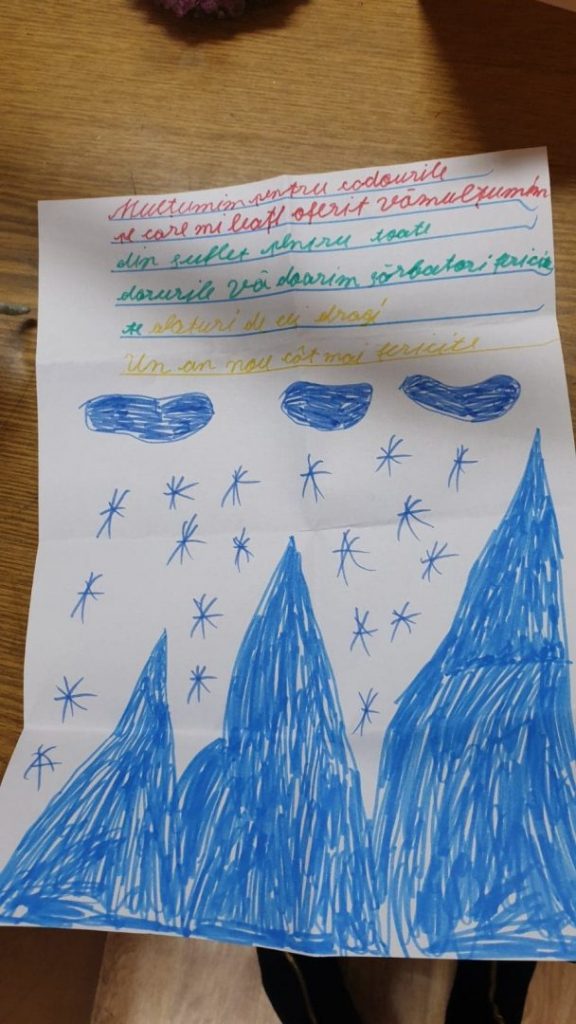 Multumim pentru cadourile
pe care mi leati oferit vămulțumim
din suflet pentru toate
darurile vă doarim sărbatori fericie
te alaturi de cej dragi
Un an nou cât mai fericite